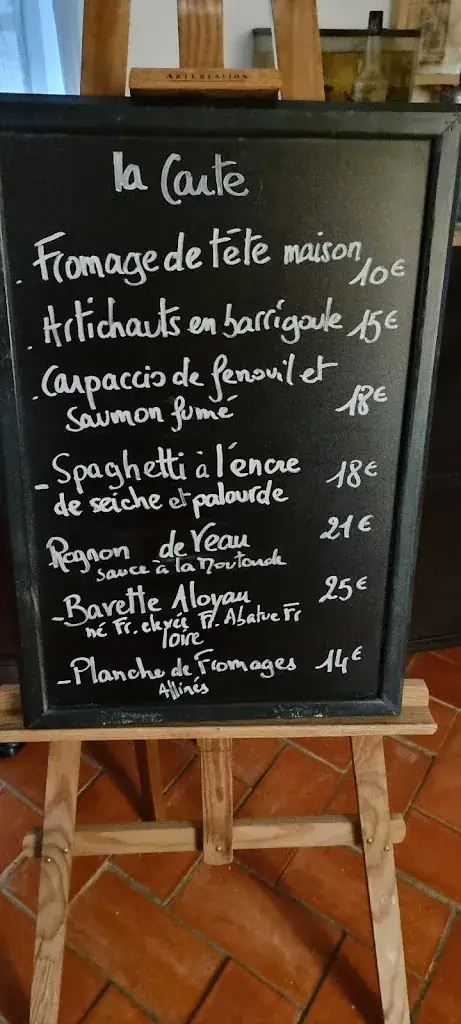 ARTCREATION
la Carte
. Fromage de tête maison 10€
. Artichauts en barrigoule 15€
. Carpaccio de fenouil et
saumon fumé 18€
- Spaghetti à l'encre 18€
de seiche et palourde
Rognon de Veau 21€
sauce à la Moutarde
- Bavette Aloyau 25€
né Fr. elevée Fr. Abatue Fr
loire
- Planche de Fromages 14€
Affinés